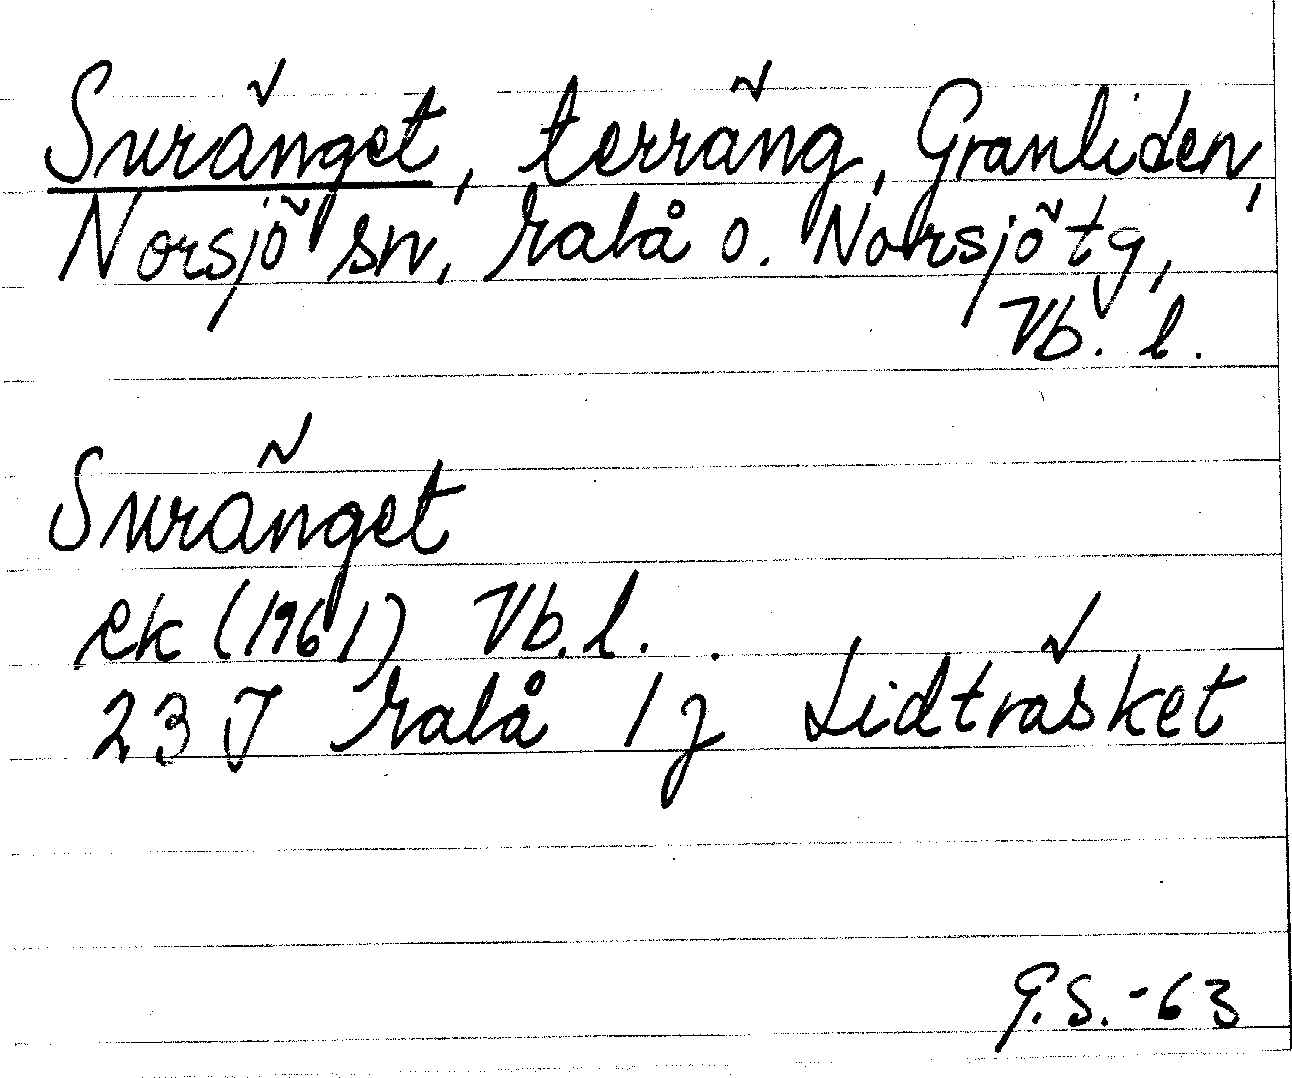 Suränget, terräng, Granliden,
Norsjö sn, Malå o. Norsjö tg,
Vb. l.
Suränget
ek (1961) Vb. l.
23 J Malå 1 j Lidträsket
G.S.-63